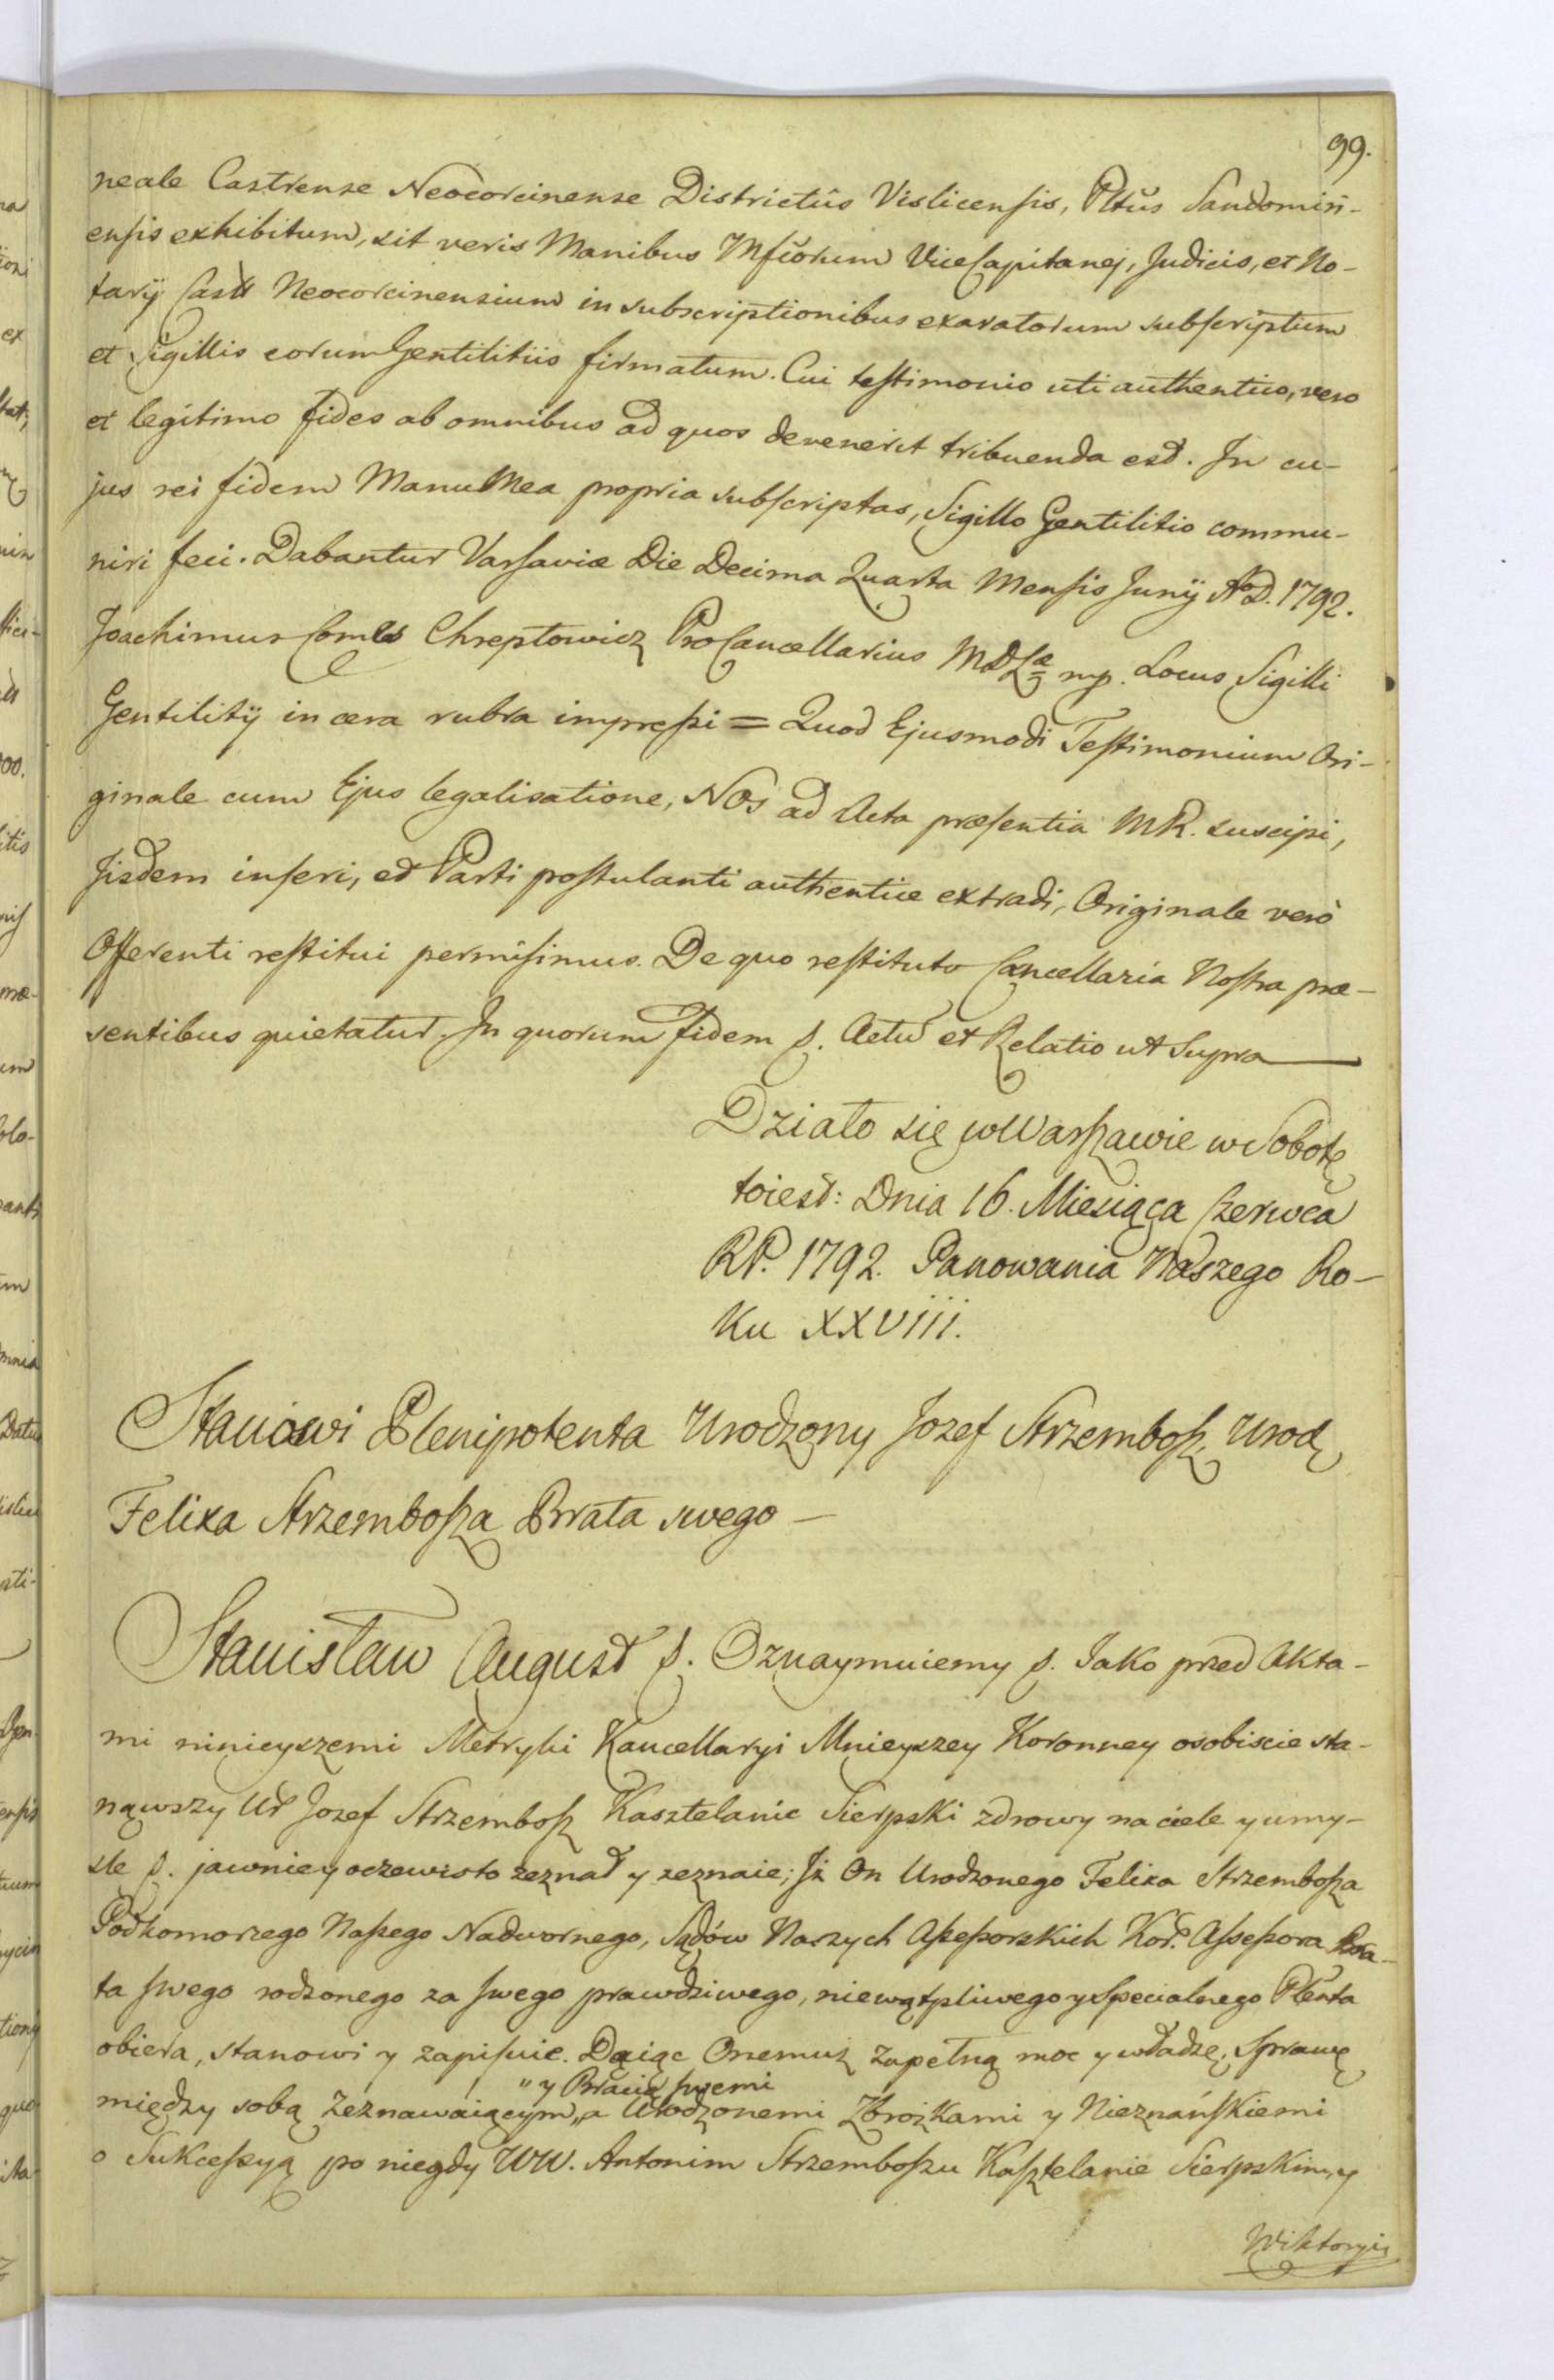 99.
neale Castrense Neocorcinense Districtûs Vislicensis, Pltûs Sandomiri-
ensis exhibitum, sit veris Manibus Mfcorum ViceCapitanej, Judicis, et No-
tarij Castr Neocorcinensium in subscriptionibus exaratorum subscriptum
et Sigillis eorum Gentilitiis firmatum. Cui testimonio uti authentico, vero
et legitimo fides ab omnibus ad quos devenerit tribuenda est. In cu-
jus rei fidem Manu Mea propria subscriptas, Sigillo Gentilitio commu-
niri feci. Dabantur Varsaviæ Die Decima Quarta Mensis Junij AoD. 1792.
Joachimus Comes Chreptowicz ProCancellarius MDLæ mp. Locus Sigilli
Gentilitij in cera rubra impressi = Quod Ejusmodi Testimonium Ori-
ginale cum Ejus legalisatione, Nos ad Acta præsentia MR. suscipi,
Jisdem inseri, et Parti postulanti authentice extradi, Originale verò
Offerenti restitui permisimus. De quo restituto Cancellaria Nostra præ-
sentibus quietatur. In quorum fidem p. Actu et Relatio ut Supra
Działo się w Warszawie w Sobotę
toiest: Dnia 16. Miesiąca Czerwca
RP. 1792. Panowania Naszego Ro-
ku XXVIII.
Stanowi Plenipotenta Urodzony Jozef Strzembosz, Urodz
Felixa Strzembosza Brata swego —
Stanisław August p. Oznaymuiemy p. Jako przed Akta-
mi ninieyszemi Metryki Kancellaryi Mnieyszey Koronney osobiscie sta-
nąwszy Ur Jozef Strzembosz Kasztelanic Sierpski zdrowy na ciele y umy-
sle p. jawnie y oczewisto zeznał y zeznaie; Jż On Urodzonego Felixa Strzembosza
Podkomorzego Naszego Nadwornego, Sądów Naszych Assessorskich Kor. Assessora Bra-
ta swego rodzonego za swego prawdziwego, niewątpliwego y Specialnego Plenta
obiera, stanowi y zapisuie. Daiąc Onemuż zupełną moc y władzę, Sprawę
" y Bracią swemi
między sobą Zeznawaiącym „ a Urodzonemi Zbrożkami y Nieznańskiemi
o Sukcessyą po niegdy WW. Antonim Strzemboszu Kasztelanie Sierpskim, y
Wiktoryi